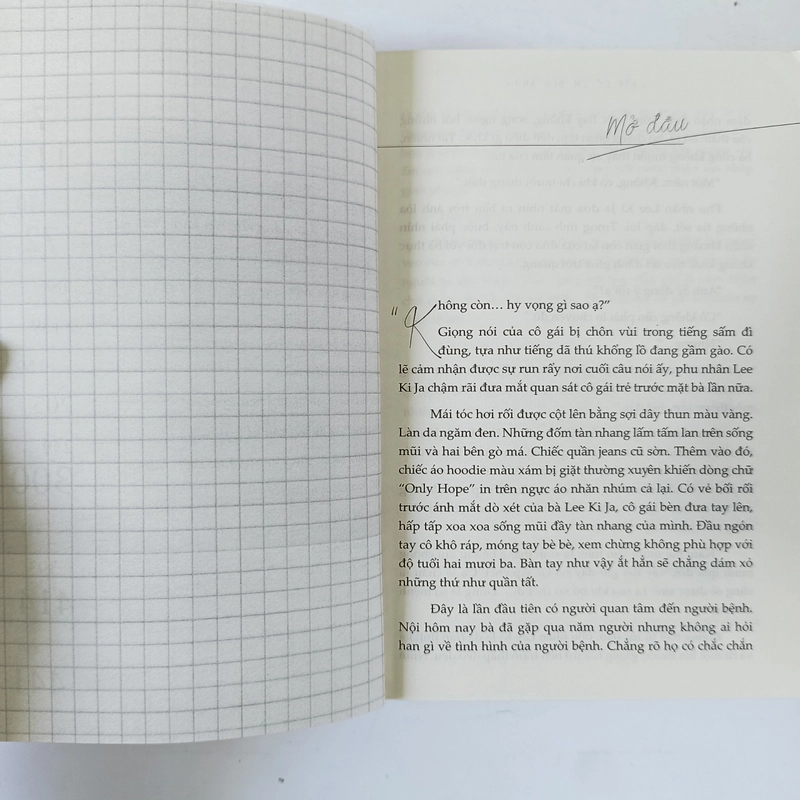 Mở đầu
"Không còn… hy vọng gì sao ạ?"
Giọng nói của cô gái bị chôn vùi trong tiếng sấm đì
đùng, tựa như tiếng dã thú khổng lồ đang gầm gào. Có
lẽ cảm nhận được sự run rẩy nơi cuối câu nói ấy, phu nhân Lee
Ki Ja chậm rãi đưa mắt quan sát cô gái trẻ trước mặt bà lần nữa.
Mái tóc hơi rối được cột lên bằng sợi dây thun màu vàng.
Làn da ngăm đen. Những đốm tàn nhang lấm tấm lan trên sống
mũi và hai bên gò má. Chiếc quần jeans cũ sờn. Thêm vào đó,
chiếc áo hoodie màu xám bị giặt thường xuyên khiến dòng chữ
"Only Hope" in trên ngực áo nhăn nhúm cả lại. Có vẻ bối rối
trước ánh mắt dò xét của bà Lee Ki Ja, cô gái bèn đưa tay lên,
hấp tấp xoa xoa sống mũi đầy tàn nhang của mình. Đầu ngón
tay cô khô ráp, móng tay bè bè, xem chừng không phù hợp với
độ tuổi hai mươi ba. Bàn tay như vậy ắt hẳn sẽ chẳng dám xỏ
những thứ như quần tất.
Đây là lần đầu tiên có người quan tâm đến người bệnh.
Nội hôm nay bà đã gặp qua năm người nhưng không ai hỏi
han gì về tình hình của người bệnh. Chẳng rõ họ có chắc chắn